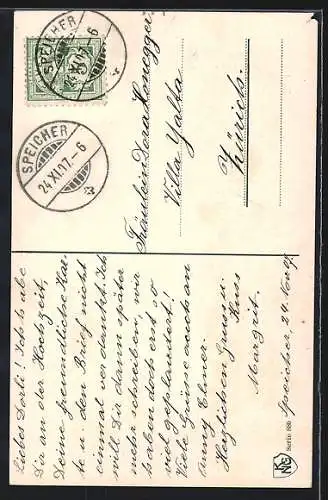 SPEICHER
24.XI.07.-6
SPEICHER
24.XI.07.-6
Fräulein Dora Honegger
Villa Yalta
Zürich.
Liebes Dorli! Ich habe
Dir an der Hochzeit,
Deine freundliche Kar-
te u. den Brief nicht
einmal verdankt. Ich
will Dir dann später
mehr schreiben, wir
haben doch erst so
viel geplaudert!
Viele Grüsse auch an
Anny Elmer.
Herzlichen Gruss u.
Kuss
Margrit.
Speicher, 24. Nov. 07.
Serie